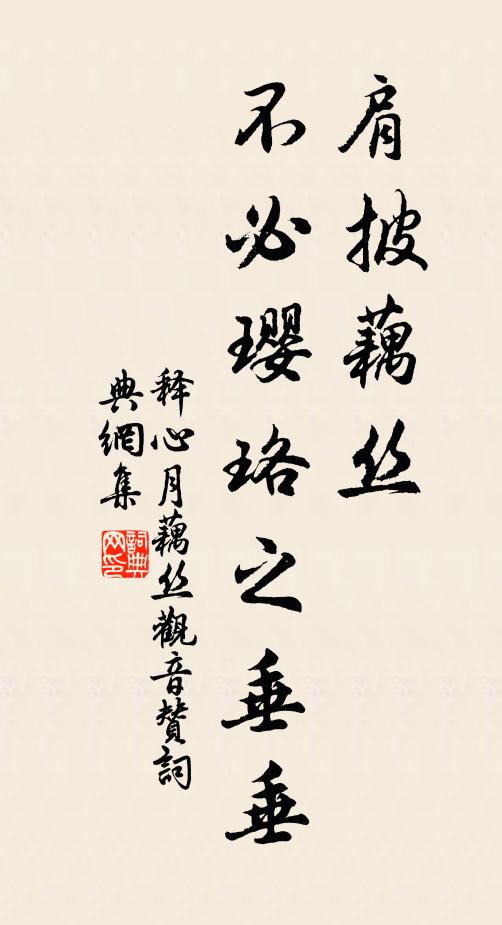 肩披藕丝
不必璎珞之垂垂
释心月藕丝觀音賛詞
典網集
詞典网印